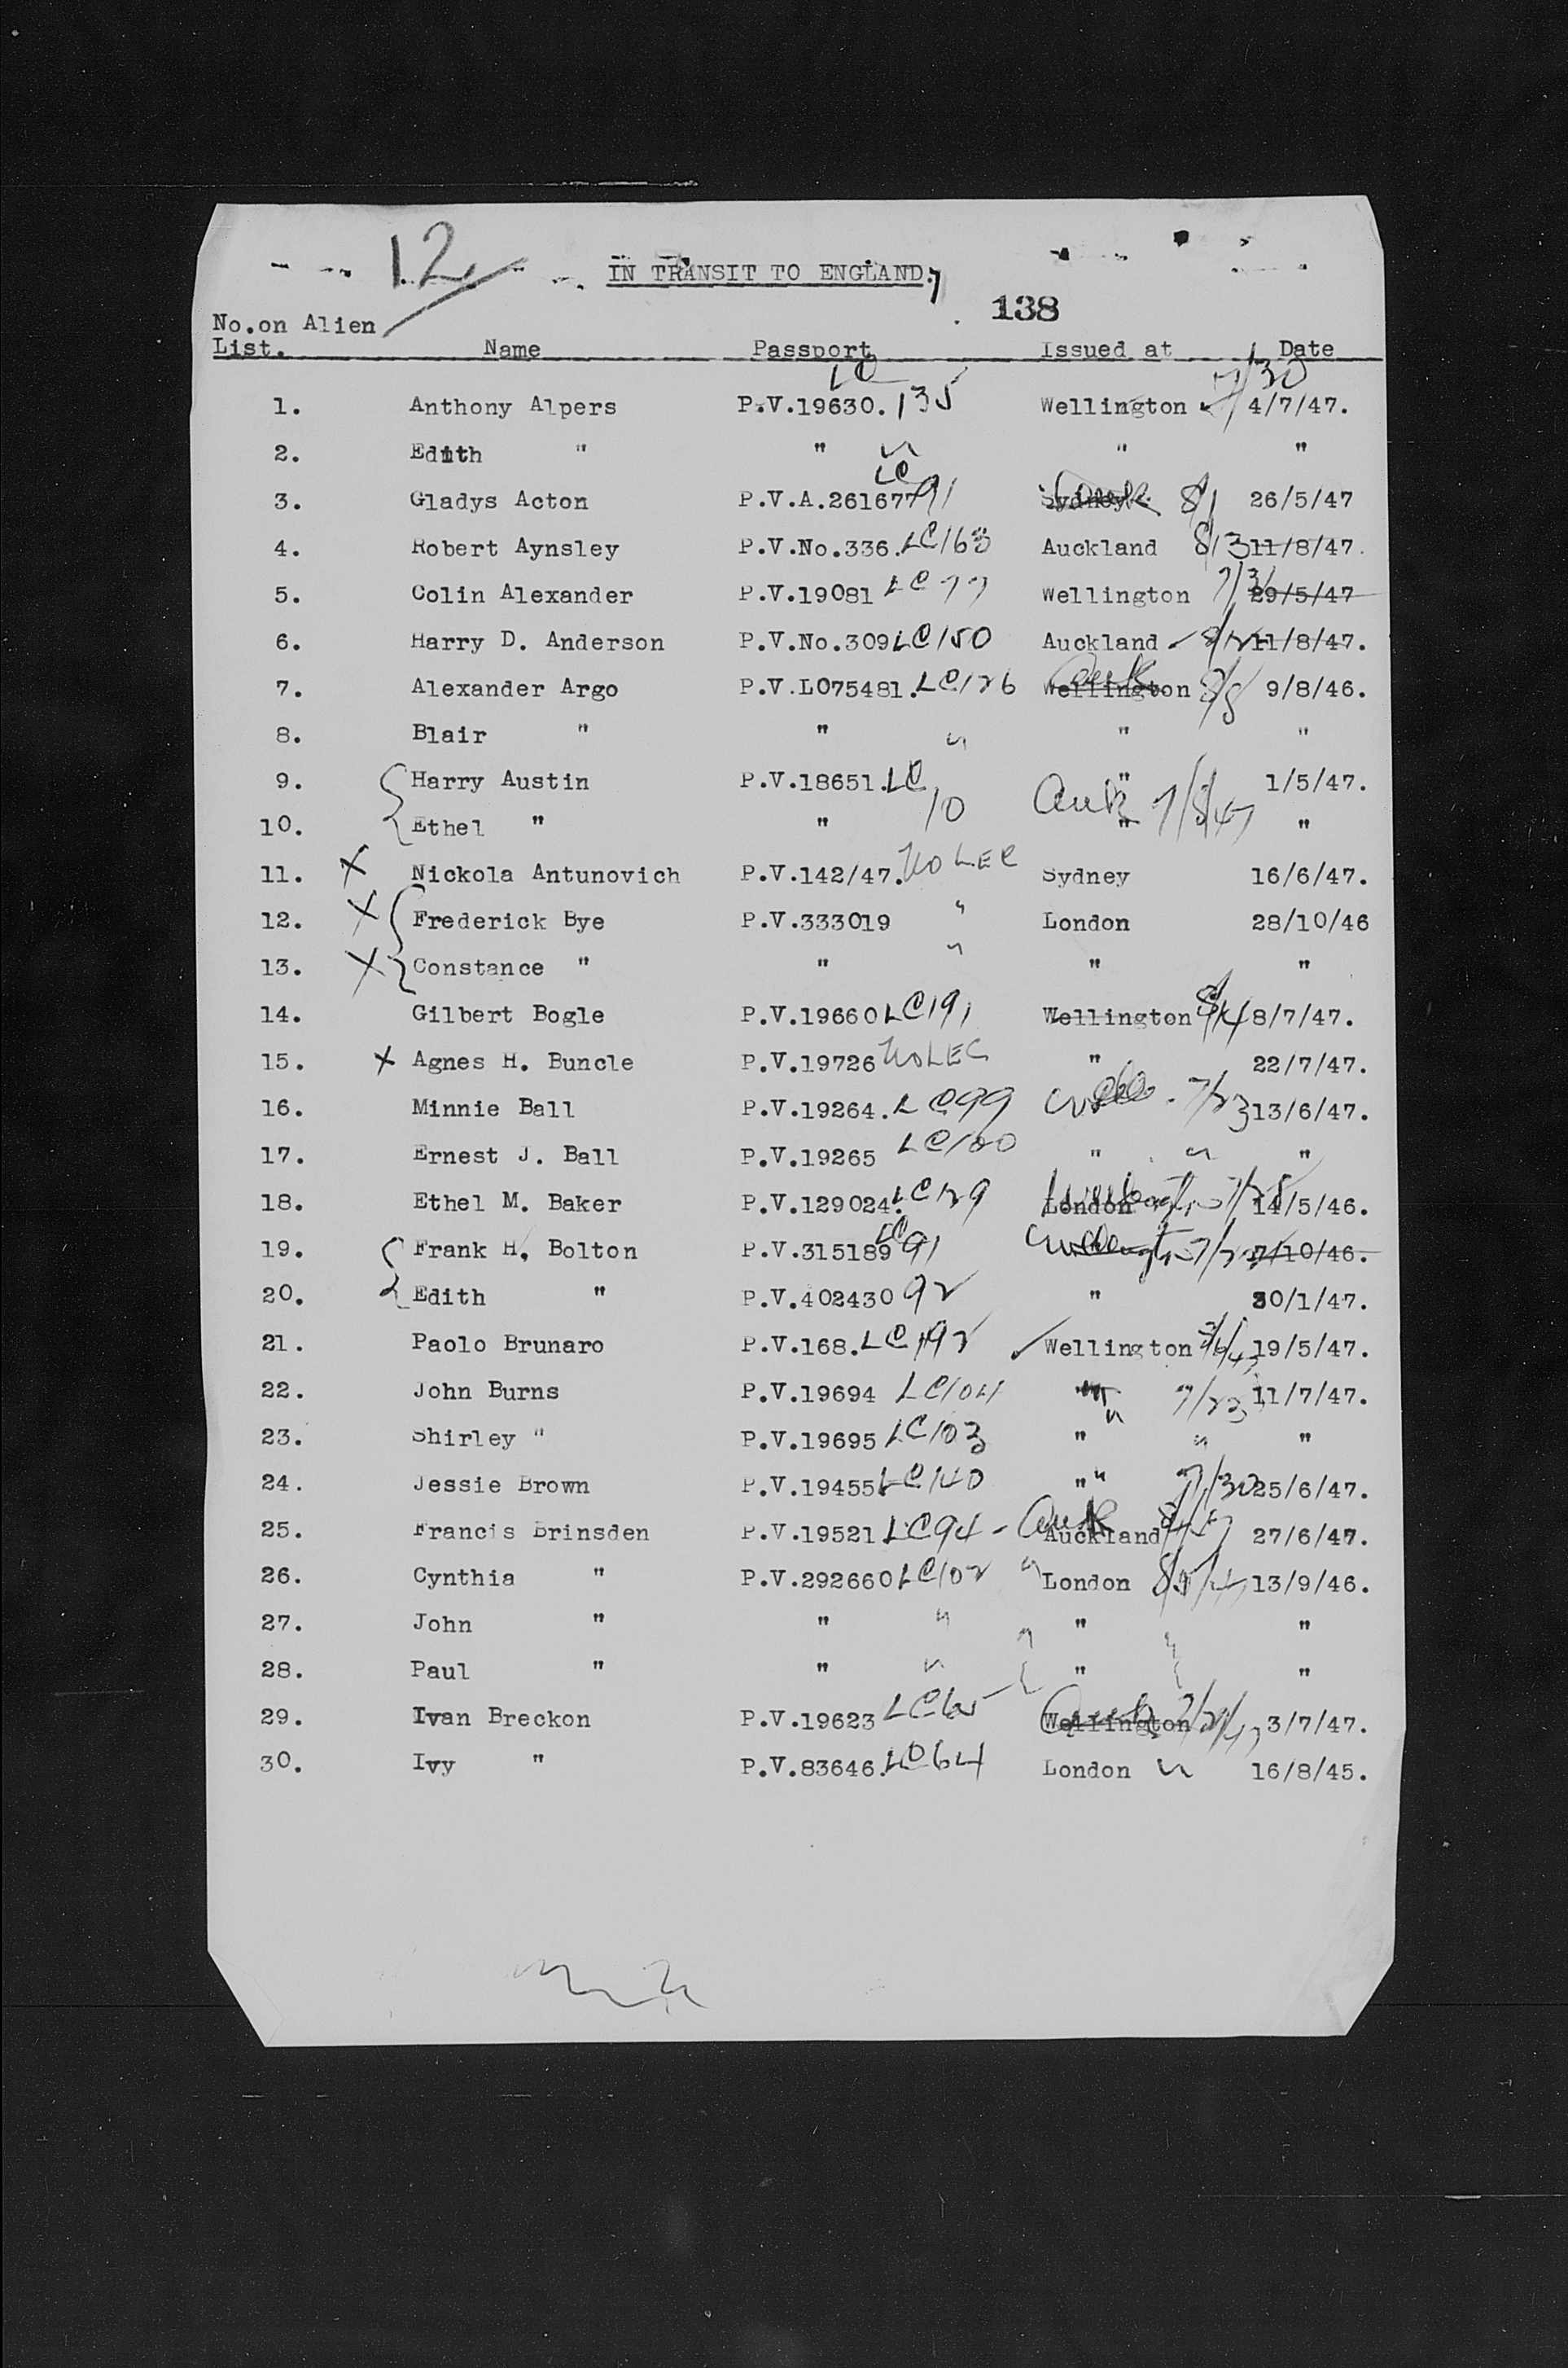 12
IN TRANSIT TO ENGLAND.
138
No.on Alien
List. Name Passport Issued at Date
LC 7/30
1. Anthony Alpers P.V.19630. 135 Wellington 4/7/47.
2. Edith " " " " "
LC
3. Gladys Acton P.V.A.261677 91 Sydney 8/1 26/5/47
4. Robert Aynsley P.V.No.336. LC163 Auckland 8/13 11/8/47.
5. Colin Alexander P.V.19081 LC77 Wellington 7/31 29/5/47
6. Harry D. Anderson P.V.No.309 LC150 Auckland 11/8/47.
Auck
7. Alexander Argo P.V.L075481. LC126 Wellington 9/8/46.
8. Blair " " " " "
9. Harry Austin P.V.18651. LC " 1/5/47.
10 Auck
10. Ethel " " " "
11. X Nickola Antunovich P.V.142/47. No LEC Sydney 16/6/47.
12. X Frederick Bye P.V.333019 " London 28/10/46
13. X Constance " " " " "
14. Gilbert Bogle P.V.19660 LC191 Wellington 8/4 8/7/47.
15. X Agnes H. Buncle P.V.19726 No LEC " 22/7/47.
16. Minnie Ball P.V.19264. LC99 7/23 13/6/47.
17. Ernest J. Ball P.V.19265 LC100 " " "
18. Ethel M. Baker P.V.129024. LC129 London 7/28 14/5/46.
LC
19. Frank H. Bolton P.V.315189 91 7/10/46.
20. Edith " P.V.402430 92 " 30/1/47.
21. Paolo Brunaro P.V.168. LC192 Wellington 19/5/47.
22. John Burns P.V.19694 LC104 " 7/23 11/7/47.
23. Shirley " P.V.19695 LC103 " " "
24. Jessie Brown P.V.19455 LC140 " " 7/30 25/6/47.
25. Francis Brinsden P.V.19521 LC94 - Auck Auckland 27/6/47.
26. Cynthia " P.V.292660 LC102 " London 13/9/46.
27. John " " " " "
28. Paul " " " " "
29. Ivan Breckon P.V.19623 LC65 Auck Wellington 3/7/47.
30. Ivy " P.V.83646. LC64 London " 16/8/45.